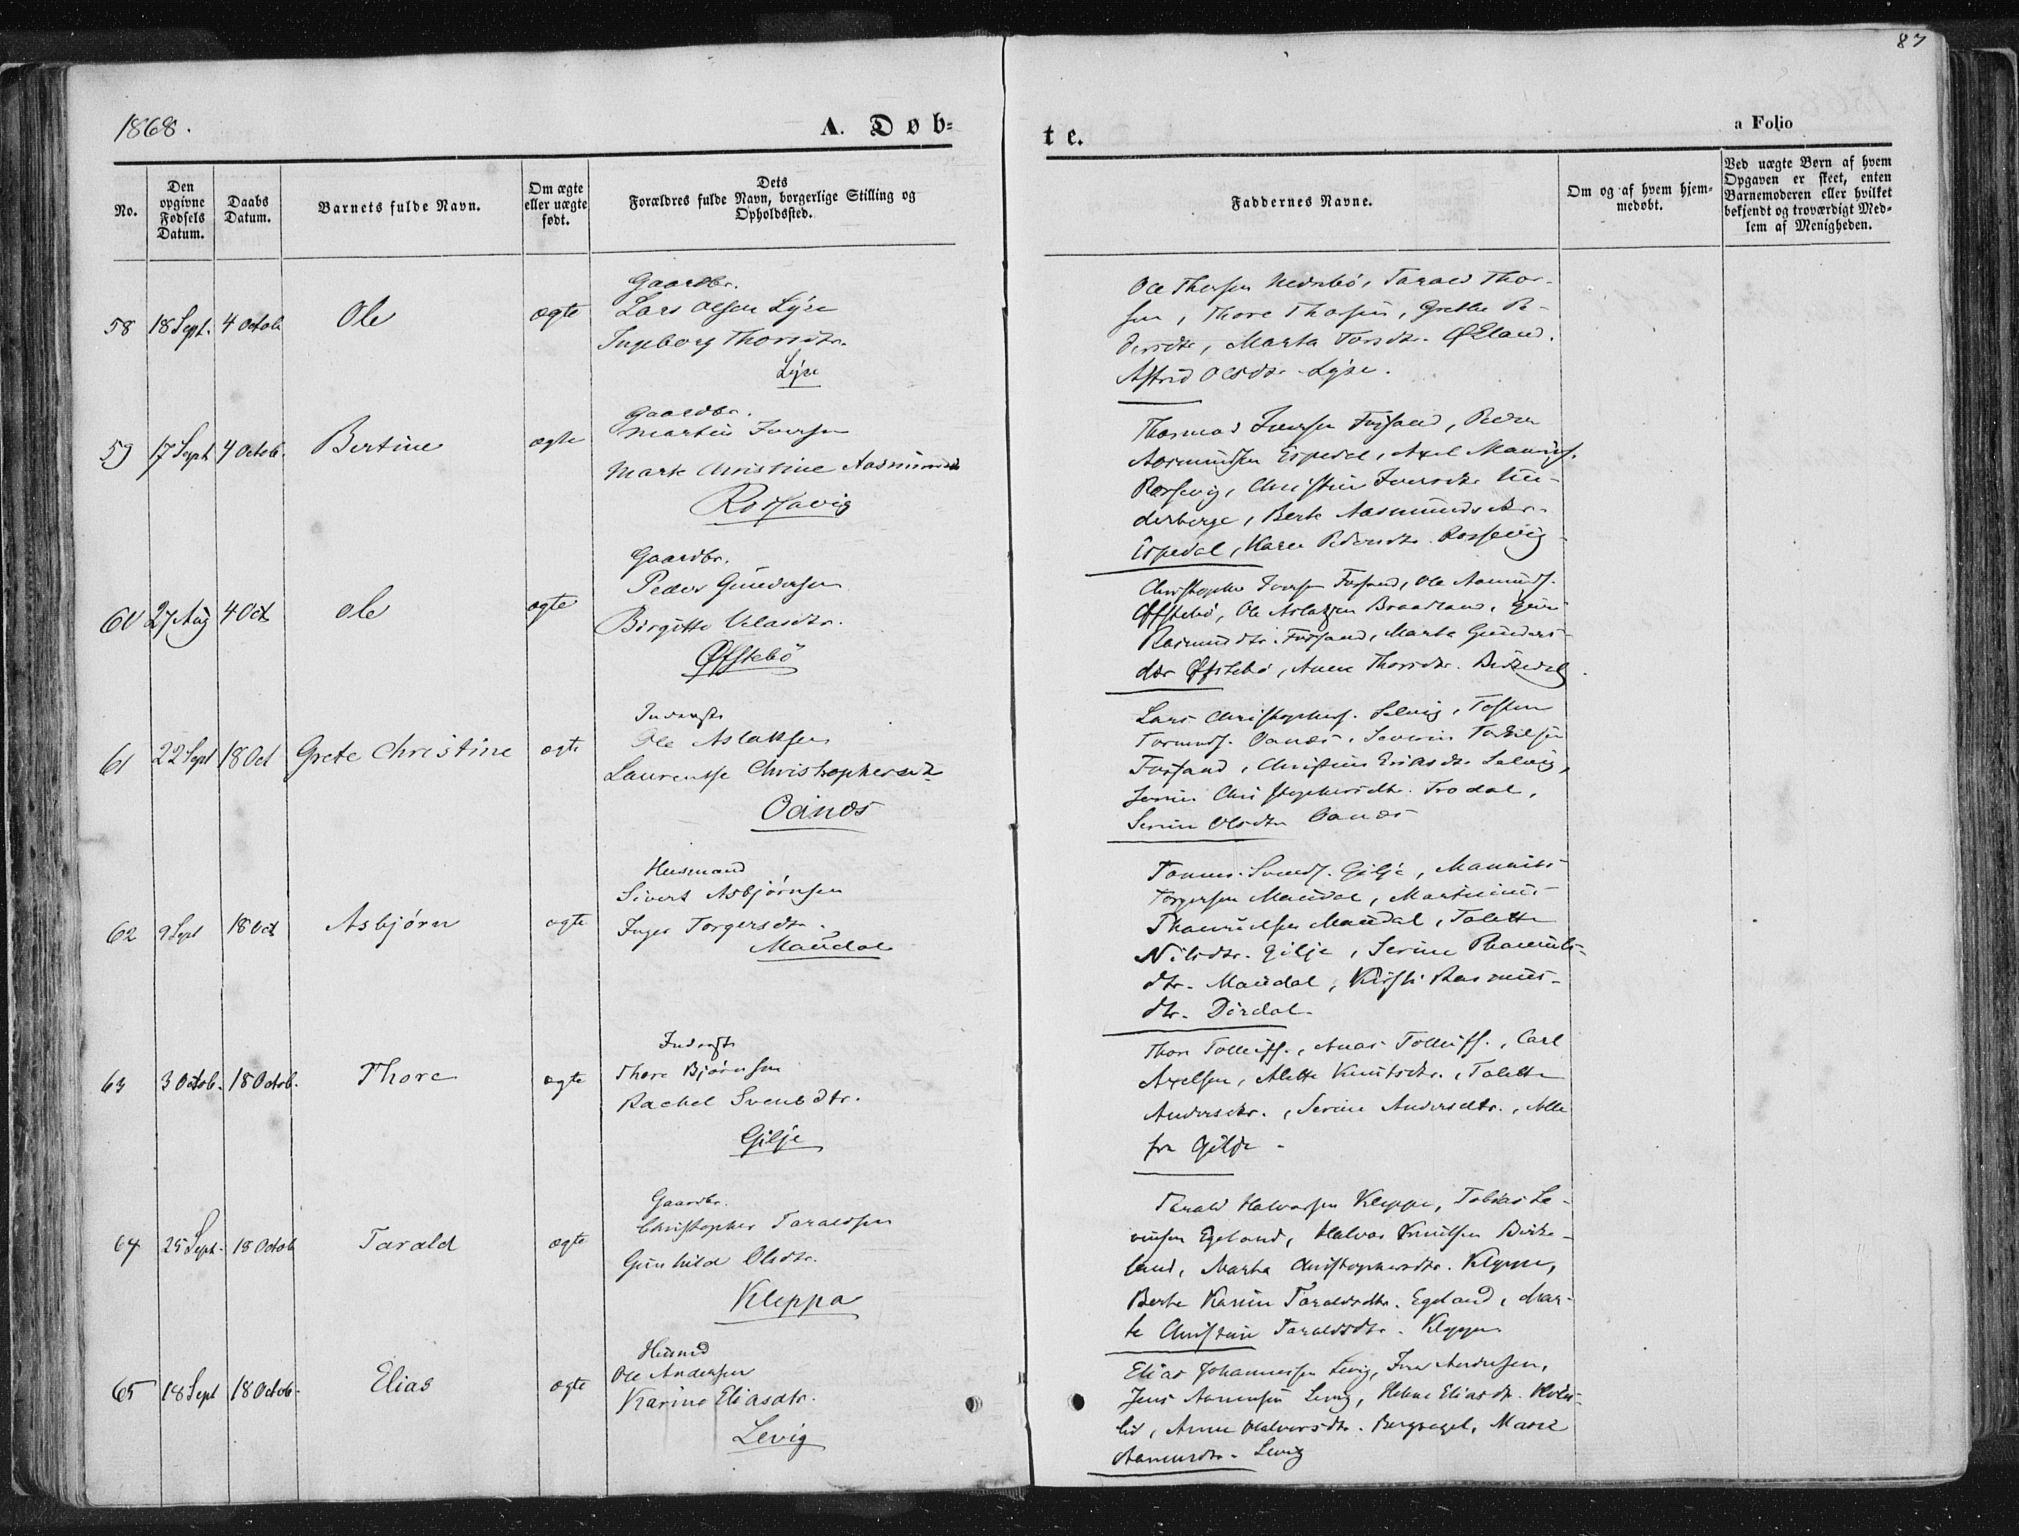 87
1868.
A. Døb=
te.
a Folio
No.
Den
opgivne
Fødsels
Datum.
Daabs
Datum.
Barnets fulde Navn.
Om ægte
eller uægte
født.
Dets
Forældres fulde Navn, borgerlige Stilling og
Opholdssted.
Faddernes Navne.
Om og af hvem hjem=
medøbt.
Ved uægte Børn af hvem
Opgaven er skeet, enten
Barnemoderen eller hvilket
bekjendt og troværdigt Med=
lem af Menigheden.
58 18 Sept. 4 Octob. Ole ægte
Gaardbr.
Lars Olsen Lyse
Ingeborg Thorsdtr.
Lyse
Ole Thorsen Nedrebö, Tarald Thor-
sen, Thore Thorsen, Grethe Pe-
dersdtr, Marta Torsdtr. Øeland.
Astrid Olsdtr Lyse.
59 17 Sept 4 Octob. Bertine ægte
Gaardbr.
Martin Iversen
Marte Christine Aasmunds
Rossavig
Iversen Fossand, Peder
Aasmundsen Espedal, Axel
Rossevig, Christine Iversdtr. Un-
derberge, Berte Aasmundsdtr.
Espedal, Karen Pedersdtr. Rossevig
60 27 Aug 4 Oct Ole ægte
Gaardbr.
Peder Gundersen
Birgitte Velasdtr.
Øfstebö
Christopher Iversen Fossand, Ole Aamunds.
Øfstebö, Ole Aslaksen Braadland,
Rasmusdtr. Fossand, Marta Gunders-
dtr Øfstebö, Anne Thorsdtr.
61 22 Sept 18 Oct Grete Christine ægte
Inderst
Ole Aslaksen
Laurentse Christophersdtr
Oanæs
Lars Christophers. Selvig, Tosten
Tormods. Oanæs, Severin Torkilsen
Fossand, Christine Eriksdtr Selvig,
Serine Christophersdtr. Frodal,
Serine Olsdtr Oanæs
62 9 Sept 18 Oct Asbjørn ægte
Husmand
Sivert Asbjørnsen
Inger Torgersdtr.
Maudal
Svends. Gilje, Mauritz
Torgersen Maudal, Martinius
Maudal, Talette
Nilsdtr. Gilje, Serine
dtr. Maudal, Kirsti Rasmus-
dtr. Dirdal.
63 3 Octob. 18 Octob. Thore ægte
Inderst
Thore Bjørnsen
Rachel Svendsdtr.
Gilje
Thore Tolleifs., Anas Tolleifs., Carl
Axelsen, Alette Knutsdtr., Talette
Andersdtr., Serine Andersdtr., Alle
fra Gilje.
64 25 Sept. 18 Octob Tarald ægte
Gaardbr.
Christopher Taraldsen
Gunhild Olsdtr.
Kleppa
Tarald Halvorsen Kleppe, Tobias Se-
verinsen Egeland, Halvor Knutsen Birke-
land, Marta Christophersdtr. Kleppe,
Berte Karine Taraldsdtr. Egeland, Mar-
te Christine Taraldsdtr. Kleppe
65 18 Sept 18 Octob. Elias ægte
Husmd
Ole Andersen
Karine Eliasdtr.
Levig
Elias Johannessen Levig, Iver Andersen,
Jens Levig, Helene Eliasdtr.
Anne Halvorsdtr. Bergvagel, Marie
Levig